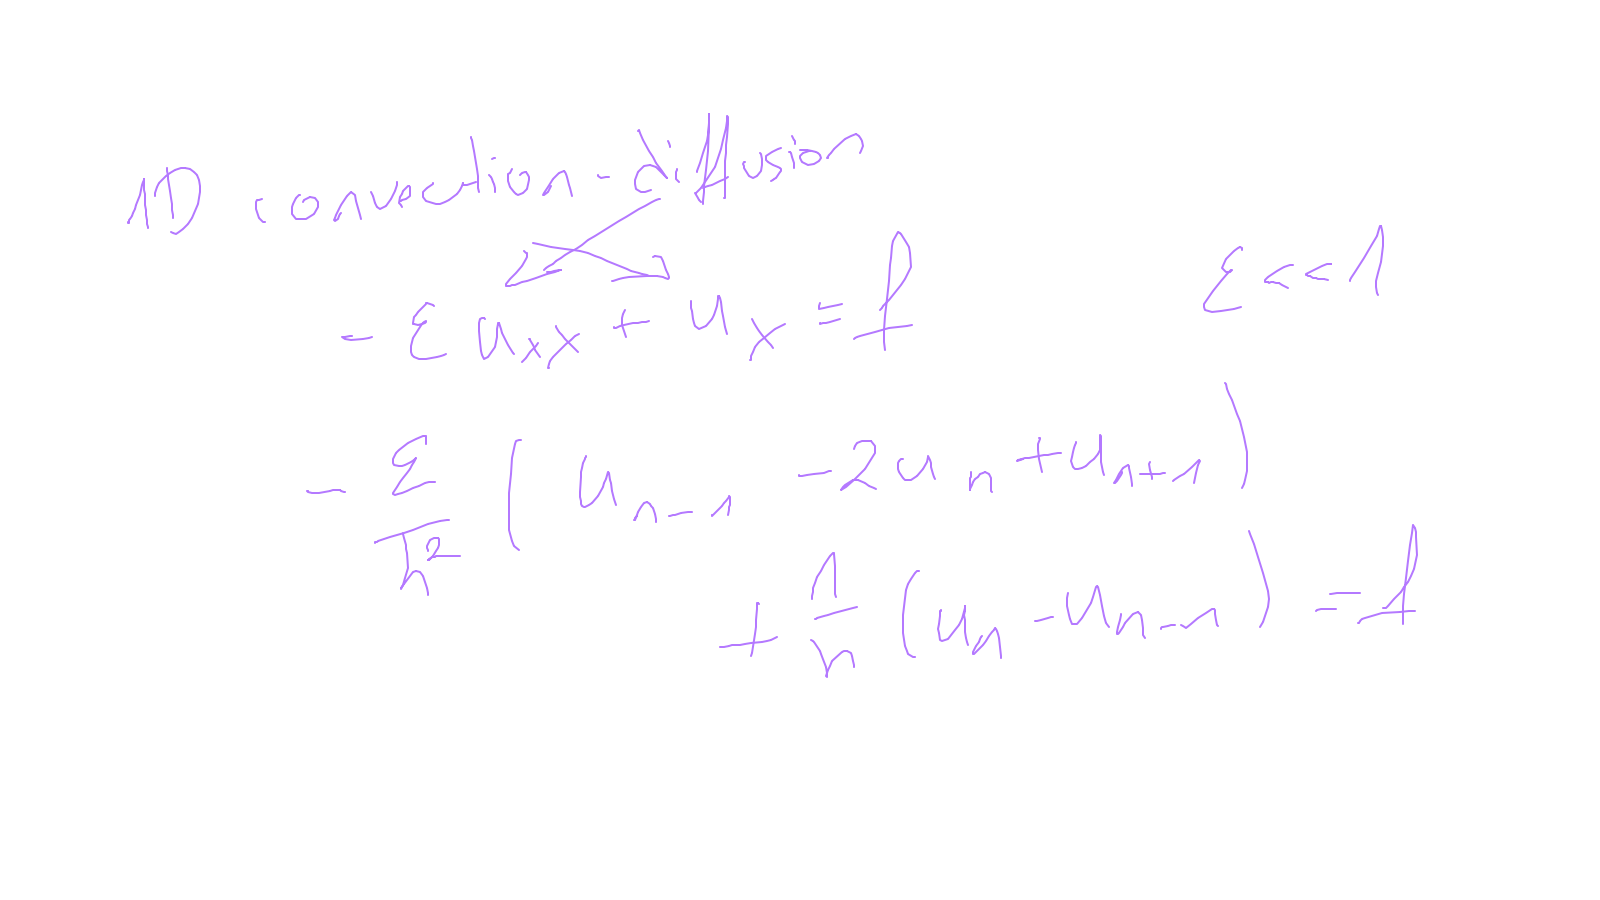 1D convection-diffusion
- ε u_xx + u_x = f    ε << 1
- ε/h² ( u_{n-1} - 2u_n + u_{n+1} )
+ 1/h ( u_n - u_{n-1} ) = f